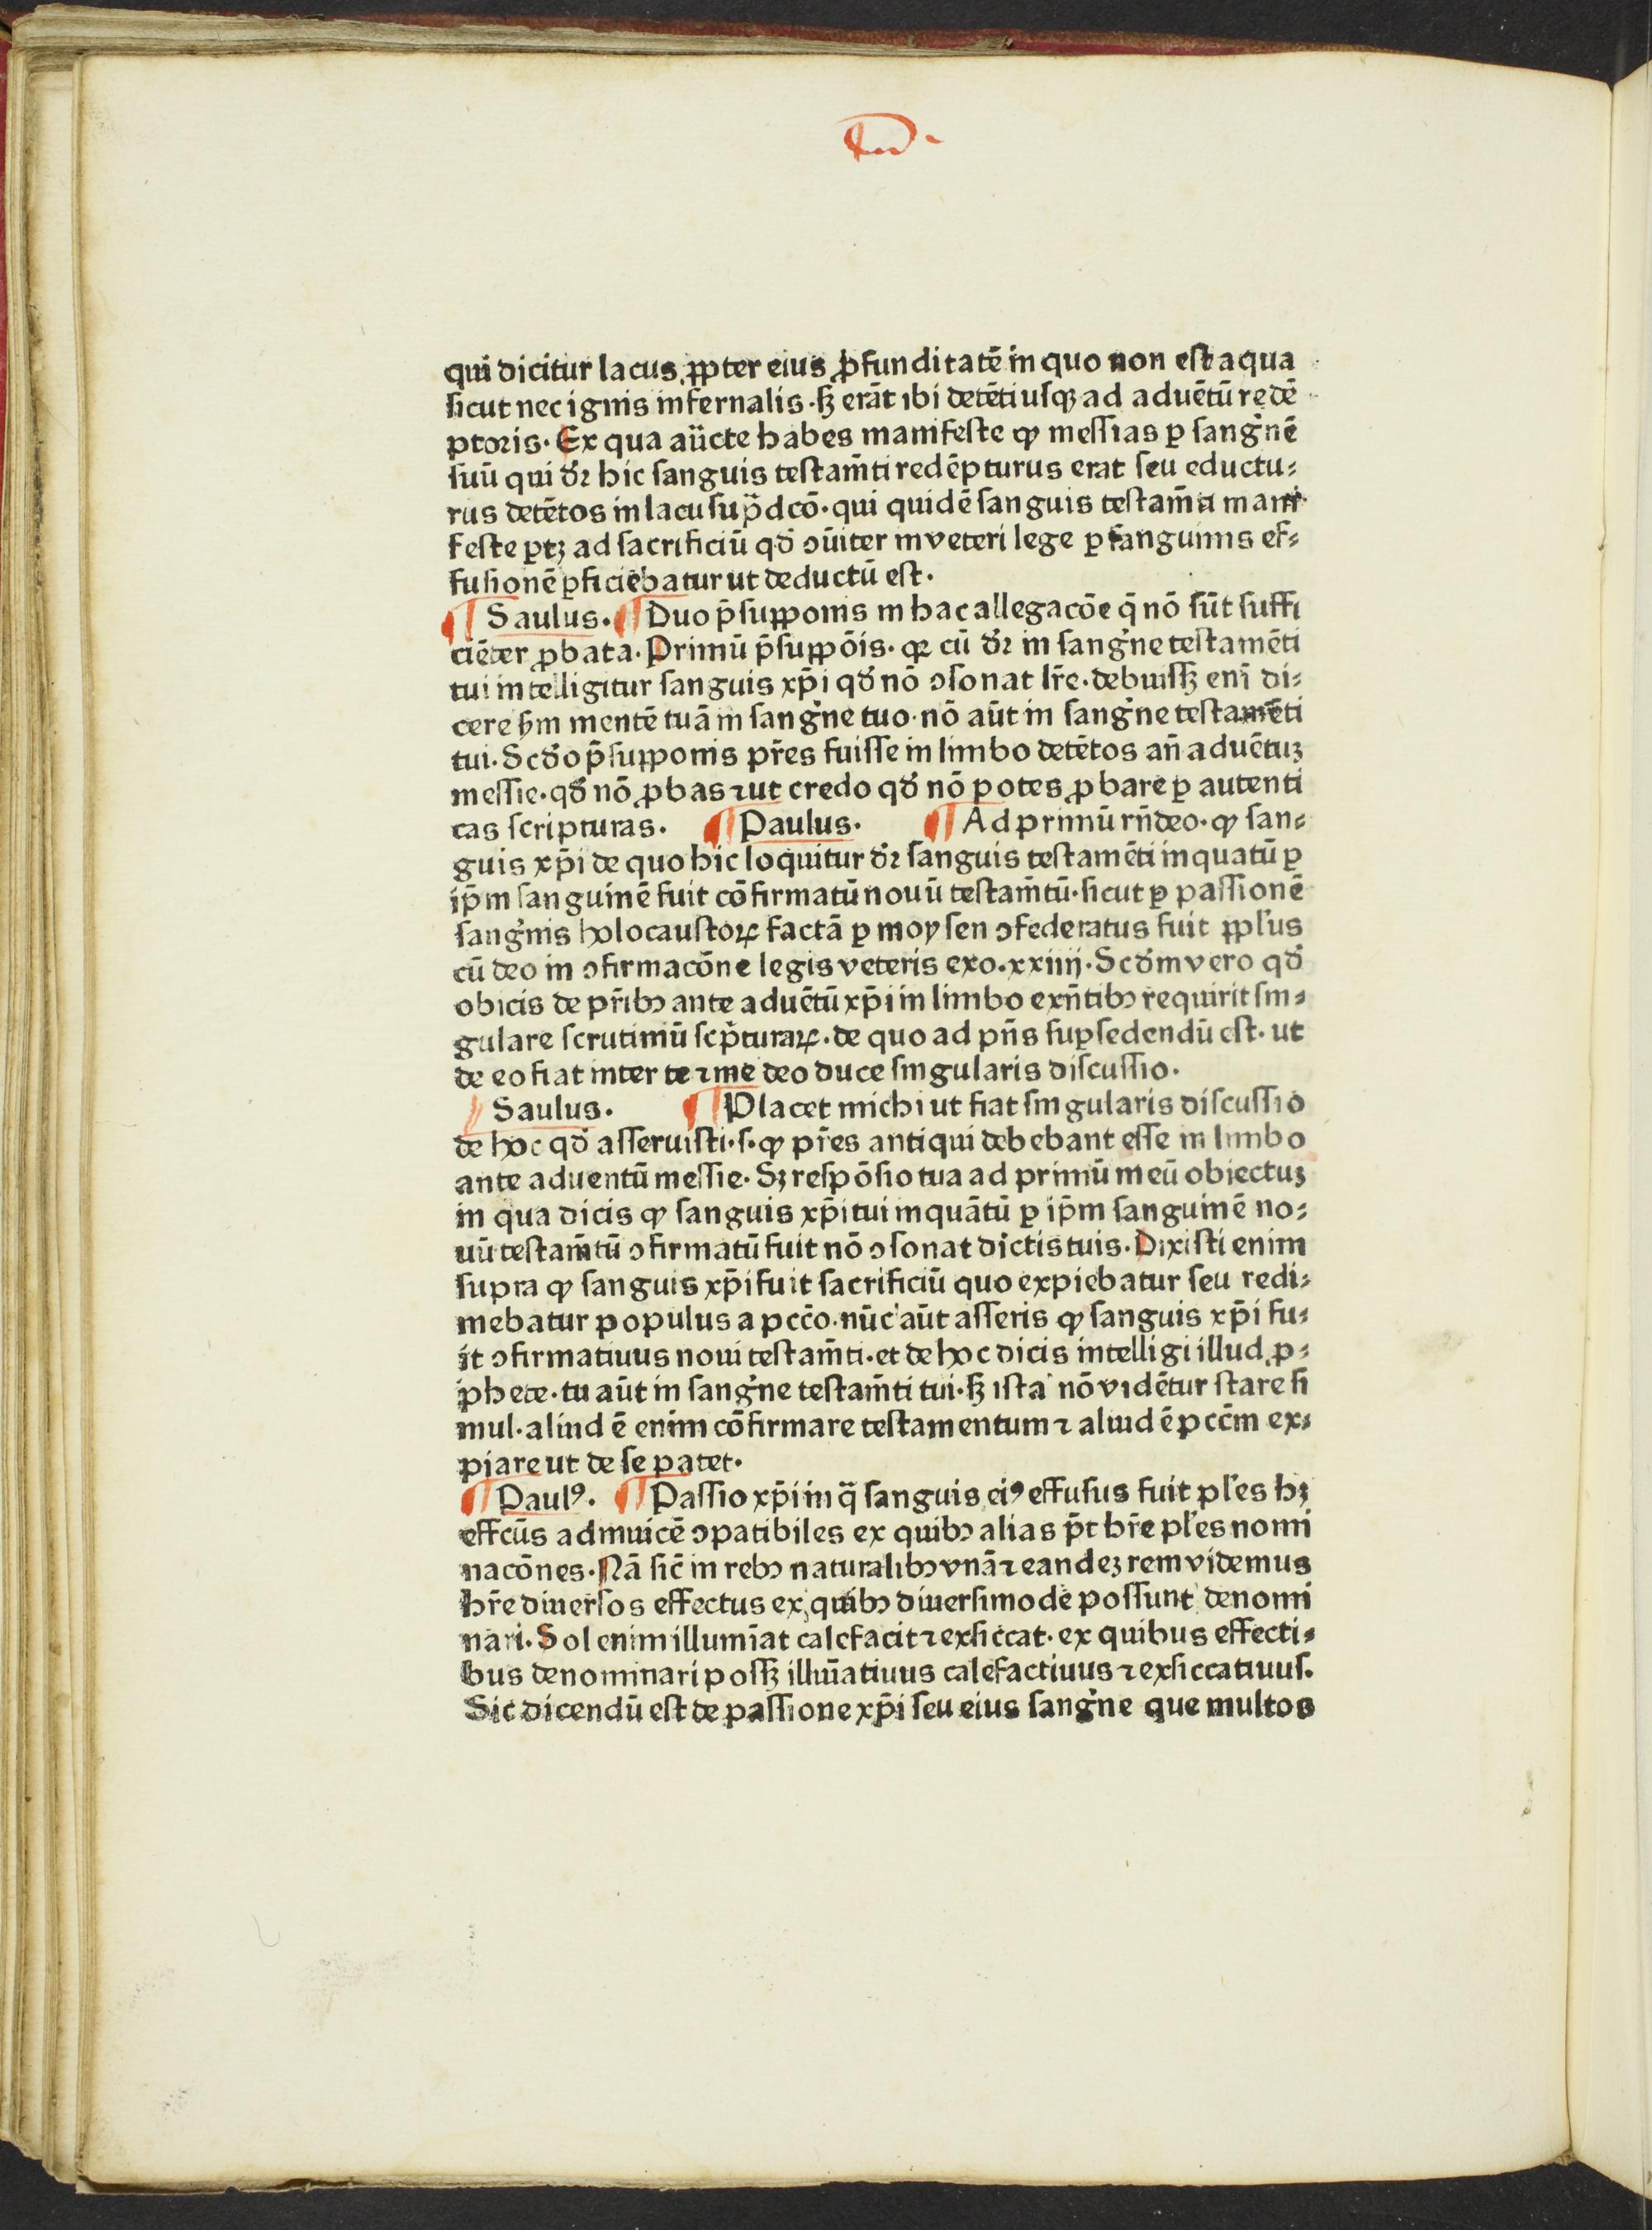 qui dicitur lacus ꝓpter eius ꝓfunditatē in quo non est aqua
ſicut nec ignis infernalis . ſꝫ erāt ibi detēti uſqꝫ ad aduētū redē
ptoris . Ex qua aūcte habes manifeste ꝙ meſſias ꝑ ſangͥnē
ſuū qui dꝛ̄ hic ſanguis testam̄ti redēpturus erat ſeu eductu⸗
rus detētos in lacu ſup̄dcō . qui quidē ſanguis testam̄ti mani
feste ꝑtꝫ ad ſacrificiū qd̄ ↄūiter in veteri lege ꝑ ſanguinis ef⸗
fuſionē ꝑficiebatur ut deductū est .
¶ Saulus . ¶ Duo p̄ſupponis in hac allegacōe q̄ nō ſūt ſuffi
ciēter ꝓbata . Primū p̄ſuppōis . qꝛ cū dꝛ̄ in ſangͥne testamēti
tui intelligitur ſanguis xp̄i qd̄ nō ↄſonat lr̄e . debuiſſꝫ enī di⸗
cere ẜm mentē tuā in ſangͥne tuo . nō aūt in ſangͥne testamēti
tui . Scd̄o p̄ſupponis pr̄es fuiſſe in limbo detētos an̄ aduētuꝫ
meſſie . qd̄ nō ꝓbas ⁊ ut credo qd̄ nō potes ꝓbare ꝑ autenti
cas ſcripturas . ¶ Paulus . ¶ Ad primū rn̄deo . ꝙ ſan⸗
guis xp̄i de quo hic loquitur dꝛ̄ ſanguis testamēti inquatū ꝑ
ip̄m ſanguinē fuit cōfirmatū nouū testam̄tū . ſicut ꝑ paſſionē
ſangͥnis holocaustoꝝ factā ꝑ moyſen ↄfederatus fuit ppl̄us
cū deo in ↄfirmacōne legis veteris exo . xxiiij . Scd̄m vero qd̄
obicis de pr̄ibꝫ ante aduētū xp̄i in limbo exn̄tibꝫ requirit ſin⸗
gulare ſcrutiniū ſcp̄turaꝝ . de quo ad pn̄s ſuꝑſedendū est . ut
de eo fiat inter te ⁊ me deo duce ſingularis diſcuſſio .
Saulus . ¶ Placet michi ut fiat ſingularis diſcuſſio
de hoc qd̄ aſſeruisti . ſ . ꝙ pr̄es antiqui debebant eſſe in limbo
ante aduentū meſſie . Sꝫ reſpōſio tua ad primū meū obiectuꝫ
in qua dicis ꝙ ſanguis xp̄i tui inquātū ꝑ ip̄m ſanguinē no⸗
uū testam̄tū ↄfirmatū fuit nō ↄſonat dictis tuis . Dixisti enim
supra ꝙ ſanguis xp̄i fuit ſacrificiū quo expiebatur ſeu redi⸗
mebatur populus a pcc̄o . nūc aūt aſſeris ꝙ ſanguis xp̄i fu⸗
it ↄfirmatiuus noui testam̄ti . et de hoc dicis intelligi illud ꝓ⸗
phete . tu aūt in ſangͥne testam̄ti tui . ſꝫ ista nō vidētur stare ſi
mul . aliud ē enim cōfirmare testamentum ⁊ aliud ē pcc̄m ex⸗
piare ut de ſe patet .
¶ Paulꝰ . ¶ Paſſio xp̄i in q̄ ſanguis eiꝰ effuſus fuit pl̄es hꝫ
effcūs adinuicē ↄpatibiles ex quibꝫ alias p̄t hr̄e pl̄es nomi
nacōnes . Nā ſic̄ in rebꝫ naturalibꝫ vnā ⁊ eandeꝫ rem videmus
hr̄e diuerſos effectus ex quibꝫ diuerſimode poſſunt denomi
nari . Sol enim illumīat calefacit ⁊ exſiccat . ex quibus effecti⸗
bus denominari poſſꝫ illuīatiuus calefactiuus ⁊ exſiccatiuuſ .
Sic dicendū est de paſſione xp̄i ſeu eius ſangͥne que multos